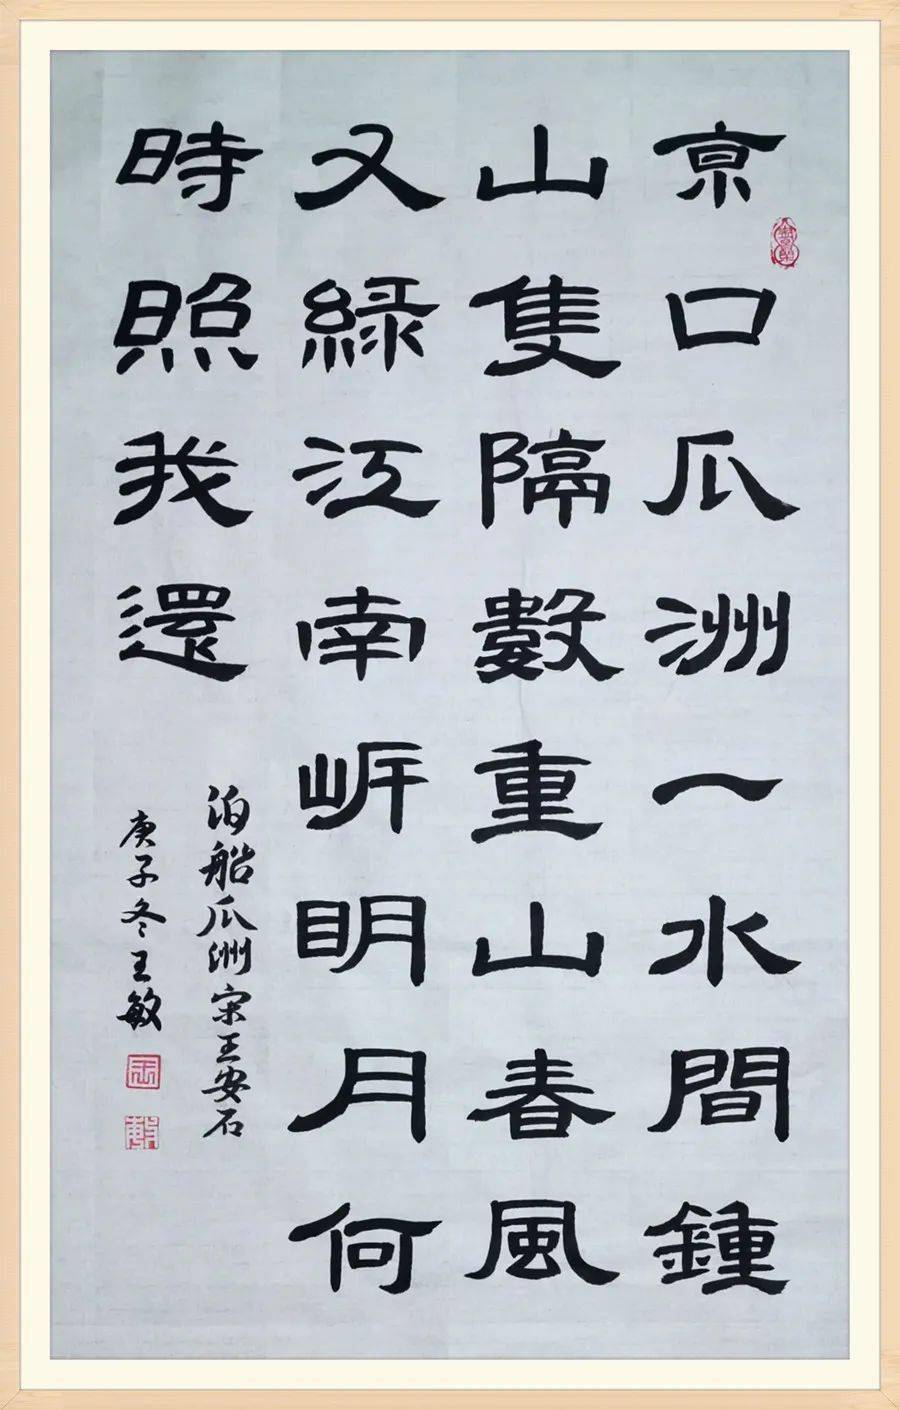 亰口瓜洲一水間鍾
山隻隔數重山春風
又緑江南岸明月何
時照我還
泊船瓜洲宋王安石
庚子冬王敏